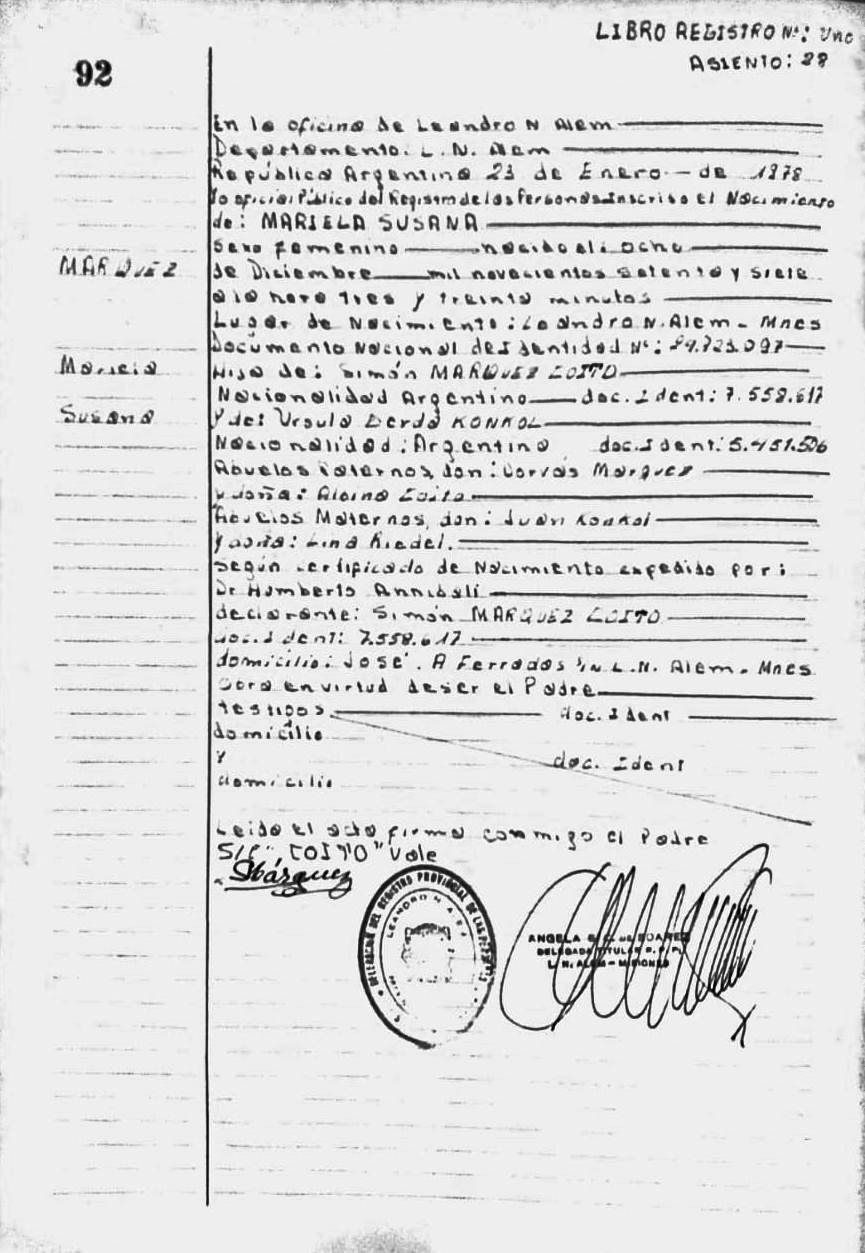 LIBRO REGISTRO Nº: Uno
ASIENTO: 28
92
En la oficina de Leandro N Alem
Departamento: L. N. Alem
República Argentina 23 de Enero de 1978
la oficial Público del Registro de las Personas Inscribo el Nacimiento
de: MARIELA SUSANA
Sexo femenino nacido el: ocho
MARQUEZ
de Diciembre mil novecientos setenta y siete
a la hora tres y treinta minutos
Lugar de Nacimiento: Leandro N. Alem - Mnes
Documento Nacional de Identidad Nº:
Mariela
Hija de: Simón MARQUEZ COITO
Nacionalidad Argentino doc. Ident: 7.558.617
Susana
y de: Ursula Berda KONKOL
Nacionalidad: Argentina doc. Ident: 5.451.506
Abuelos Paternos, don: Marquez
y doña: Albina Coito
Abuelos Maternos, don: Juan Konkol
y doña: Lina Riedel.
Según certificado de Nacimiento expedido por:
Dr Humberto Annibali
declarante: Simón MARQUEZ COITO
doc. Ident: 7.558.617
domicilio: José. A Ferrados S/N L.N. Alem - Mnes
Obra en virtud de ser el Padre
testigos doc. Ident
domicilio
y doc. Ident
domicilio
Leida el acta firma conmigo el Padre
S/C "COITO" Vale
SMárquez
DELEGACION DEL REGISTRO PROVINCIAL DE LAS PERSONAS
LEANDRO N. ALEM
ANGELA DE SUAREZ
DELEGADA TITULAR R. P. P.
L. N. ALEM - MISIONES